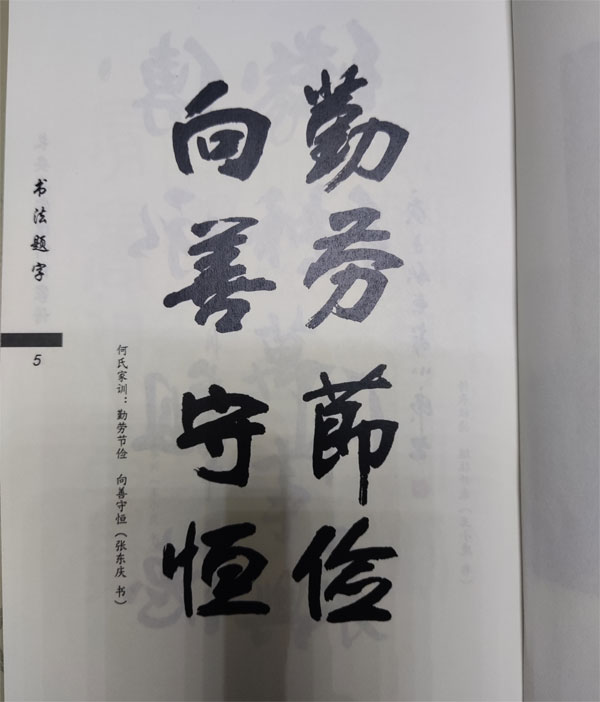 勤劳莭俭
向善守恒
何氏家训：勤劳节俭 向善守恒（张东庆 书）
书法题字
5